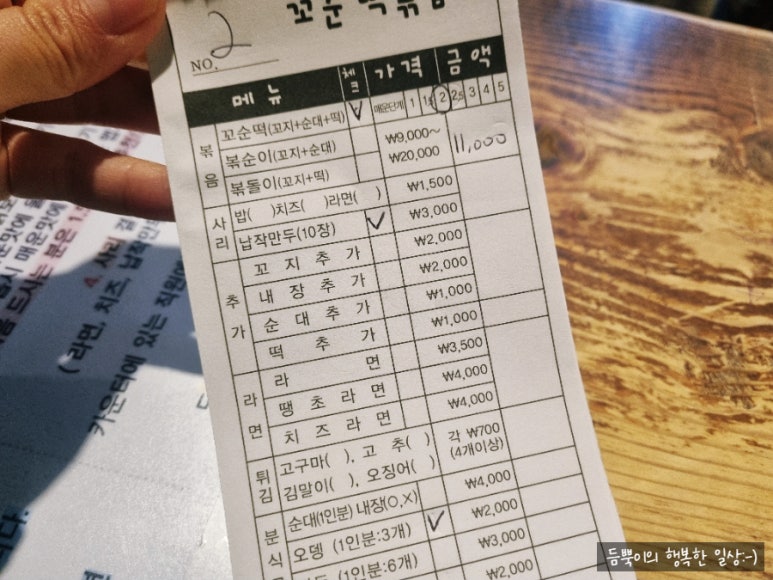 NO. 2
메뉴 체크 가격 금액
볶음
꼬순떡(꼬지+순대+떡) V 매운단계 1 2 3 4 5
볶순이(꼬지+순대) ₩9,000~ ₩20,000 11,000
볶돌이(꼬지+떡)
사리
밥( )치즈( )라면( ) ₩1,500
납작만두(10장) V ₩3,000
추가
꼬지추가 ₩2,000
내장추가 ₩2,000
순대추가 ₩1,000
떡추가 ₩1,000
라면
라면 ₩3,500
땡초라면 ₩4,000
치즈라면 ₩4,000
튀김
고구마( ), 고추( ) 각 ₩700
김말이( ), 오징어( ) (4개이상)
분식
순대(1인분) 내장(O,X) ₩4,000
오뎅 (1인분:3개) V ₩2,000
(1인분:6개) ₩3,000
₩2,000
4. 사리
(라면, 치즈, 납작만
카운터에 있는 직원에
듬뿍이의 행복한 일상:-)